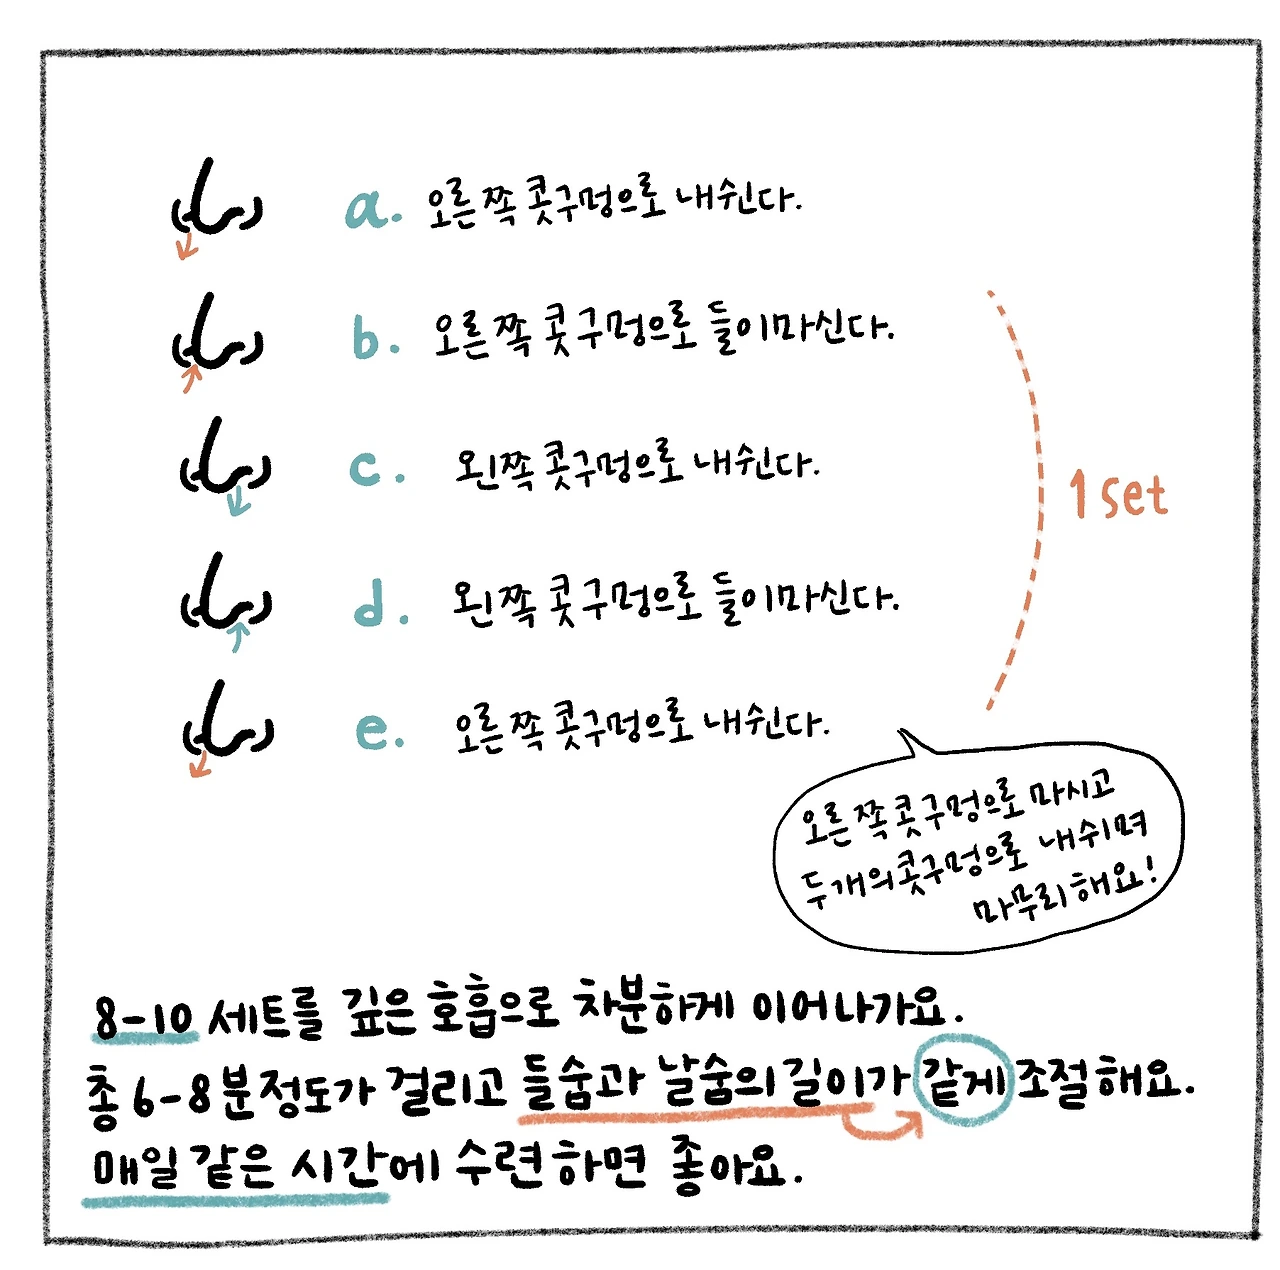 a. 오른쪽 콧구멍으로 내쉰다.
b. 오른쪽 콧구멍으로 들이마신다.
c. 왼쪽 콧구멍으로 내쉰다.
d. 왼쪽 콧구멍으로 들이마신다.
e. 오른쪽 콧구멍으로 내쉰다.
1 set
오른쪽 콧구멍으로 마시고
두개의 콧구멍으로 내쉬며
마무리해요!
8-10 세트를 깊은 호흡으로 차분하게 이어나가요.
총 6-8분정도가 걸리고 들숨과 날숨의 길이가 같게 조절해요.
매일 같은 시간에 수련하면 좋아요.